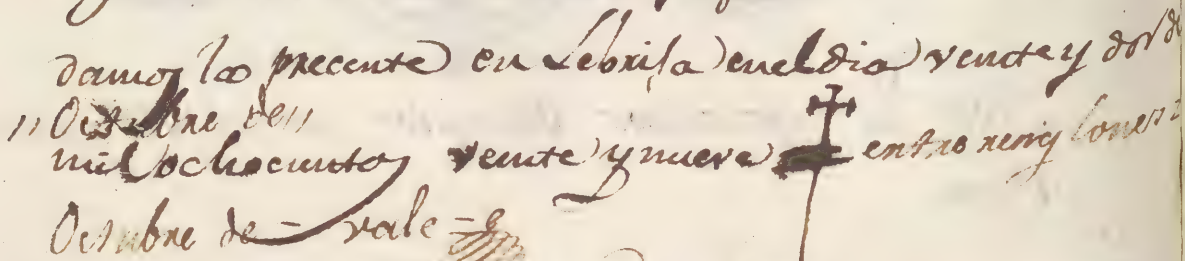 damos la precente en Lebrisa enel dia veinte y dos de
"Octubre de"
mil ochocientos veinte y nueve = entre renglones =
Octubre de = vale =